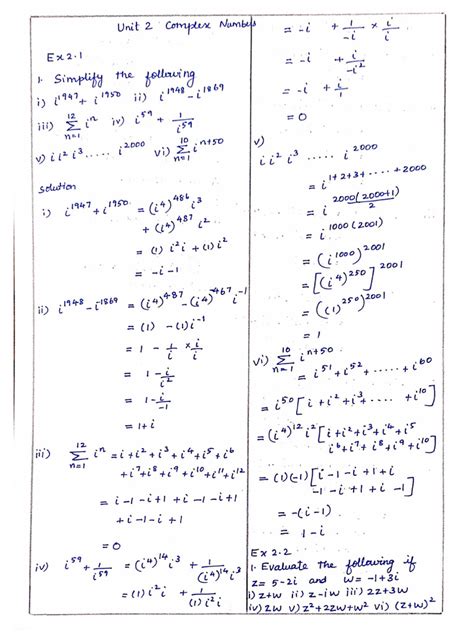 Unit 2 Complex Numbers
Ex 2.1
1. Simplify the following
i) i^1947 + i^1950 ii) i^1948 - i^-1869
iii) 12 Σ n=1 i^n iv) i^59 + 1/i^59
v) i i^2 i^3 ..... i^2000 vi) 10 Σ n=1 i^n+50
Solution
i) i^1947 + i^1950 = (i^4)^486 i^3
+ (i^4)^487 i^2
= (1) i^2 i + (1) i^2
= -i-1
ii) i^1948 - i^-1869 = (i^4)^487 - (i^4)^-467 i^-1
= (1) - (1) i^-1
= 1 - 1/i × i/i
= 1 - i/i^2
= 1 - i/-1
= 1+i
iii) 12 Σ n=1 i^n = i+i^2+i^3+i^4+i^5+i^6
+i^7+i^8+i^9+i^10+i^11+i^12
= i-1-i+1+i-1-i+1
+i-1-i+1
= 0
iv) i^59 + 1/i^59 = (i^4)^14 i^3 + 1/(i^4)^14 i^3
= (1) i^2 i + 1/(1) i^2 i
= -i + 1/-i × i/i
= -i + i/-i^2
= -i + i/1
= 0
v)
i i^2 i^3 ..... i^2000
= i^1+2+3+.....+2000
= i^2000(2000+1)/2
= i^1000(2001)
= (i^1000)^2001
= [(i^4)^250]^2001
= ((1)^250)^2001
= 1
vi) 10 Σ n=1 i^n+50
= i^51 + i^52 + ..... + i^60
= i^50 [i+i^2+i^3+.... +i^10]
= (i^4)^12 i^2 [i+i^2+i^3+i^4+i^5
i^6+i^7+i^8+i^9+i^10]
= (1)(-1) [i-1-i+1+i
-1-i+1+i-1]
= -(i-1)
= 1-i
Ex 2.2
1. Evaluate the following if
z = 5-2i and w = -1+3i
i) z+w ii) z-iw iii) 2z+3w
iv) zw v) z^2+2zw+w^2 vi) (z+w)^2